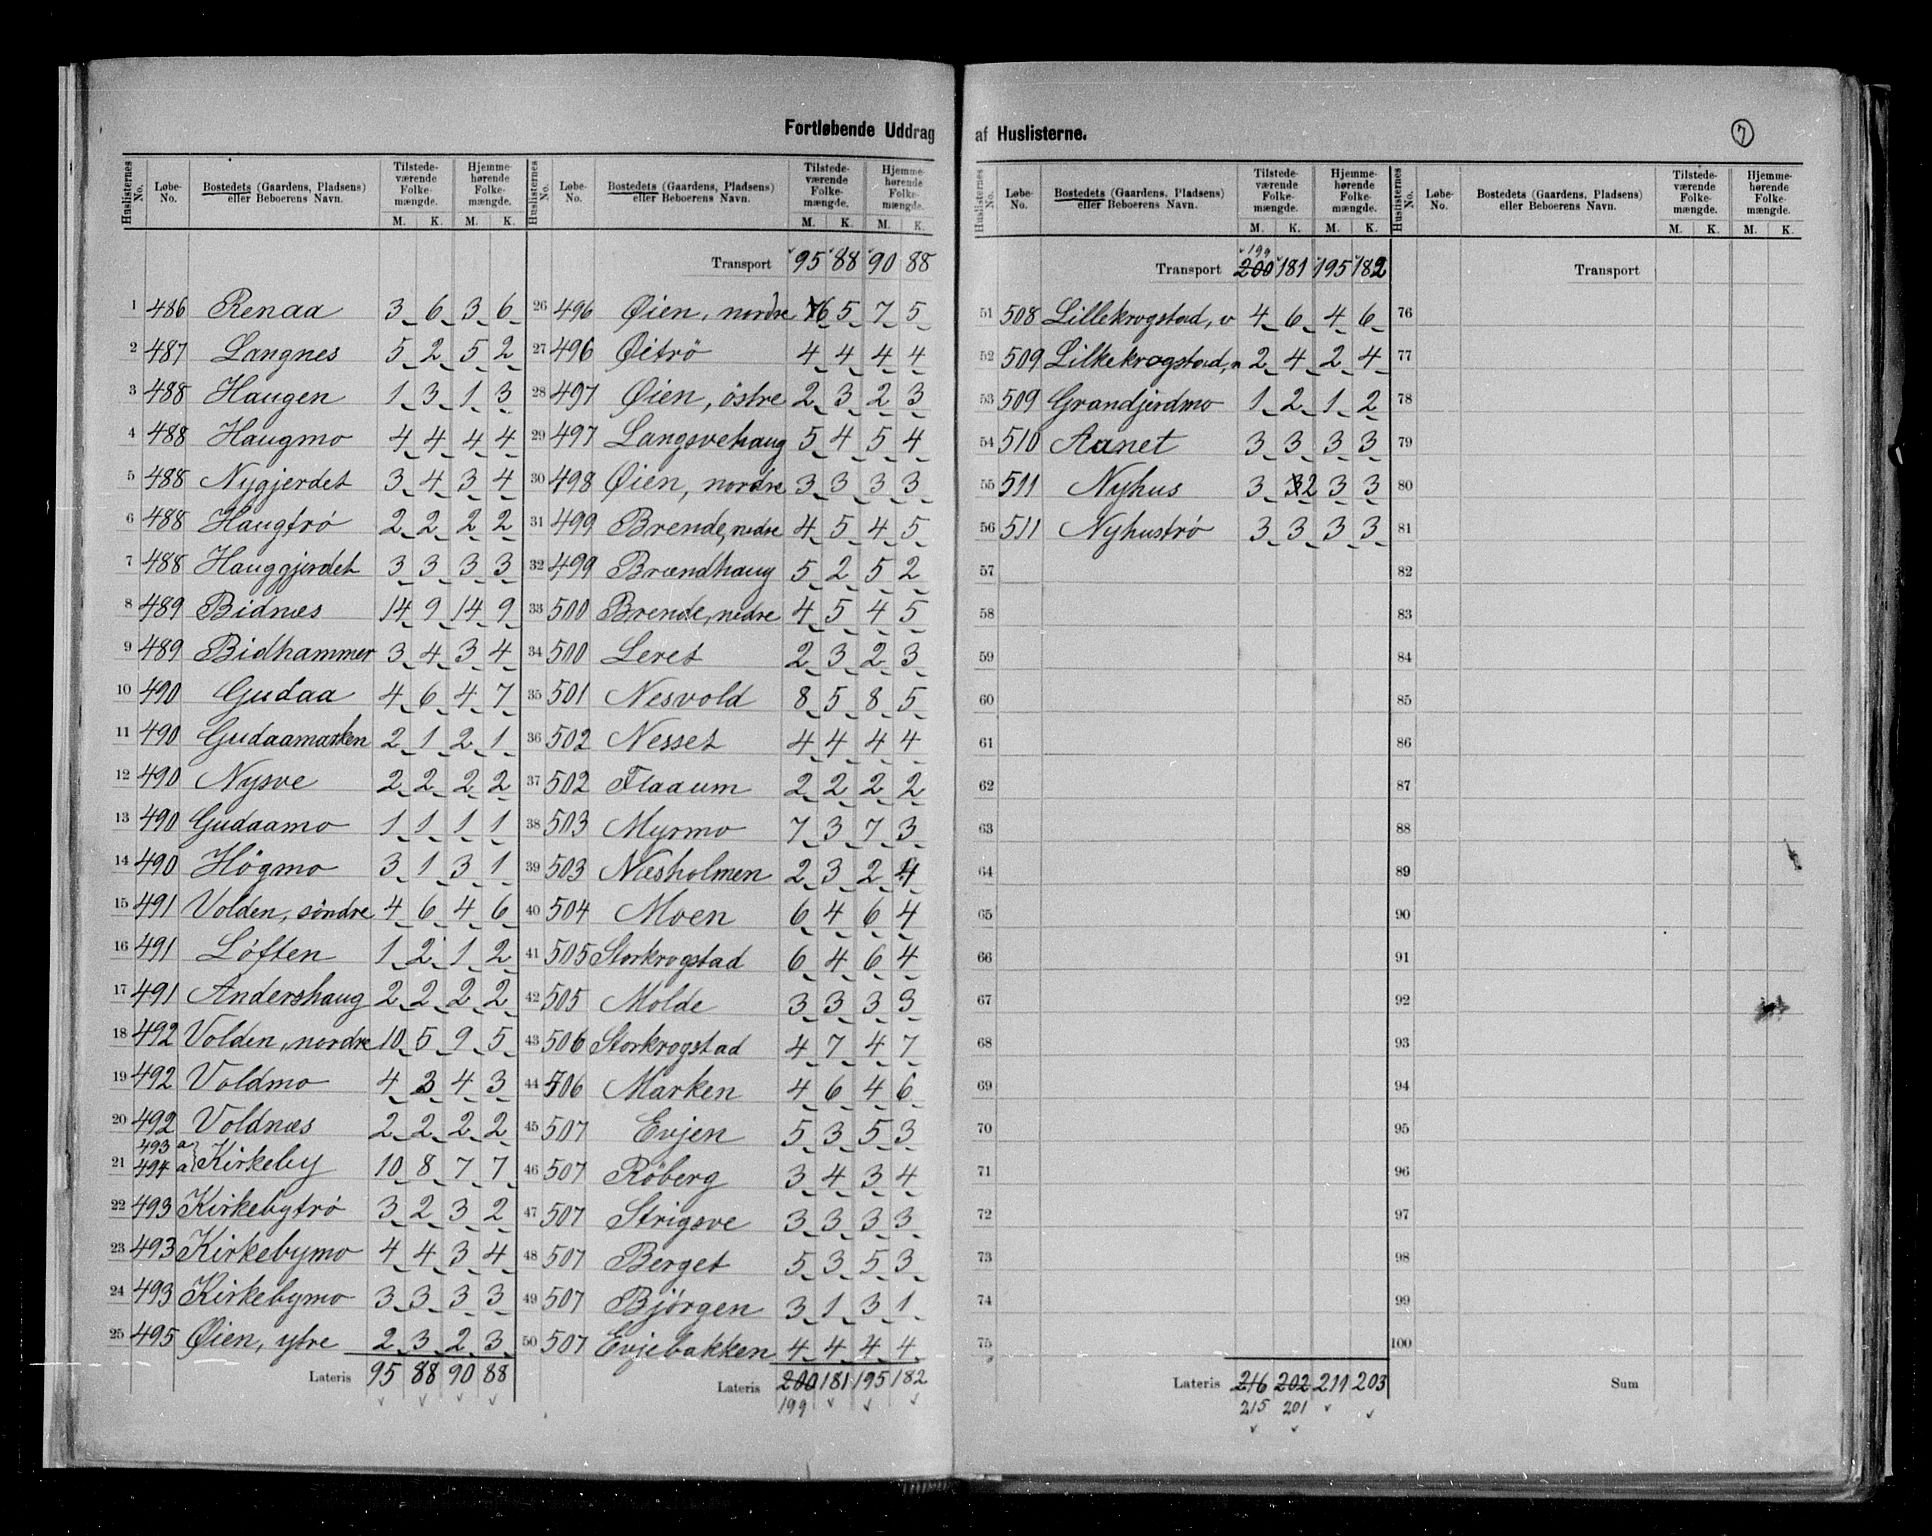 Fortløbende Uddrag af Huslisterne.
7
Huslisternes No. | Løbe-No. | Bostedets (Gaardens, Pladsens) eller Beboerens Navn. | Tilstedeværende Folkemængde. M. K. | Hjemmehørende Folkemængde. M. K.
1 486 Renaa 3 6 3 6
2 487 Langnes 5 2 5 2
3 488 Haugen 1 3 1 3
4 488 Haugmo 4 4 4 4
5 488 Nygjerdet 3 4 3 4
6 488 Haugtrø 2 2 2 2
7 488 Hauggjerdet 3 3 3 3
8 489 Bidnæs 14 9 14 9
9 489 Bidhammer 3 4 3 4
10 490 Gudaa 4 6 4 7
11 490 Gudaamarken 2 1 2 1
12 490 Nysve 2 2 2 2
13 490 Gudaamo 1 1 1 1
14 490 Högmo 3 1 3 1
15 491 Volden, söndre 4 6 4 6
16 491 Löften 1 2 1 2
17 491 Andershaug 2 2 2 2
18 492 Volden, nordre 10 5 9 5
19 492 Voldmo 4 3 4 3
20 492 Voldnæs 2 2 2 2
21 493 a 494 a Kirkeby 10 8 7 7
22 493 Kirkebytrø 3 2 3 2
23 493 Kirkebymo 4 4 3 4
24 493 Kirkebymo 3 3 3 3
25 495 Øien, ytre 2 3 2 3
Lateris 95 88 90 88
Huslisternes No. | Løbe-No. | Bostedets (Gaardens, Pladsens) eller Beboerens Navn. | Tilstedeværende Folkemængde. M. K. | Hjemmehørende Folkemængde. M. K.
Transport 95 88 90 88
26 496 Øien, nordre 6 5 7 5
27 496 Øitrø 4 4 4 4
28 497 Øien, östre 2 3 2 3
29 497 Langsvehaug 5 4 5 4
30 498 Øien, nordre 3 3 3 3
31 499 Brende, nedre 4 5 4 5
32 499 Brændhaug 5 2 5 2
33 500 Brende, nedre 4 5 4 5
34 500 Leret 2 3 2 3
35 501 Nesvold 8 5 8 5
36 502 Nesset 4 4 4 4
37 502 Flaaum 2 2 2 2
38 503 Myrmo 7 3 7 3
39 503 Næsholmen 2 3 2 4
40 504 Moen 6 4 6 4
41 505 Storkrogstad 6 4 6 4
42 505 Molde 3 3 3 3
43 506 Storkrogstad 4 7 4 7
44 506 Marken 4 6 4 6
45 507 Evjen 5 3 5 3
46 507 Röberg 3 4 3 4
47 507 Strigsve 3 3 3 3
48 507 Berget 5 3 5 3
49 507 Björgen 3 1 3 1
50 507 Evjebakken 4 4 4 4
Lateris 200 181 195 182
199
Huslisternes No. | Løbe-No. | Bostedets (Gaardens, Pladsens) eller Beboerens Navn. | Tilstedeværende Folkemængde. M. K. | Hjemmehørende Folkemængde. M. K.
199
Transport 200 181 195 182
51 508 Lillekrogstad, v 4 6 4 6
52 509 Lillekrogstad, n 2 4 2 4
53 509 Grandjerdmo 1 2 1 2
54 510 Aanet 3 3 3 3
55 511 Nyhus 3 2 3 3
56 511 Nyhustrø 3 3 3 3
57
58
59
60
61
62
63
64
65
66
67
68
69
70
71
72
73
74
75
Lateris 216 202 211 203
215 201
Huslisternes No. | Løbe-No. | Bostedets (Gaardens, Pladsens) eller Beboerens Navn. | Tilstedeværende Folkemængde. M. K. | Hjemmehørende Folkemængde. M. K.
Transport
76
77
78
79
80
81
82
83
84
85
86
87
88
89
90
91
92
93
94
95
96
97
98
99
100
Sum